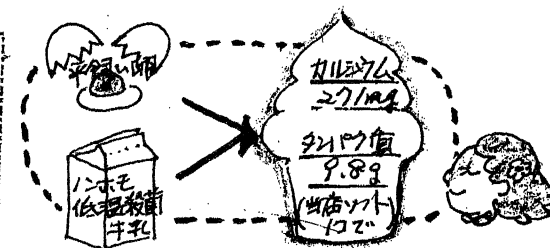 平飼い卵
ノンホモ
低温殺菌
牛乳
カルシウム
271mg
タンパク質
9.8g
(当店ソフト
1コで